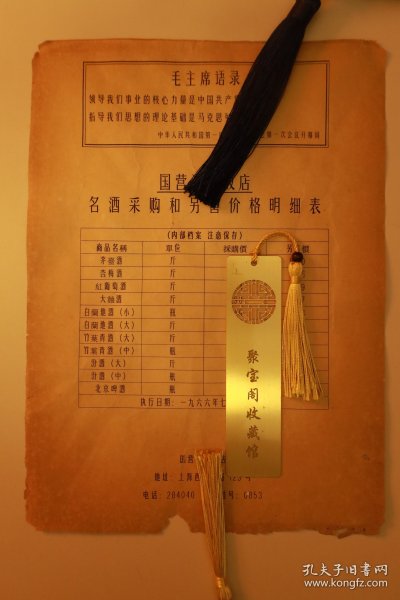 毛主席语录
领导我们事业的核心力量是中国共产
指导我们思想的理论基础是马克思
中华人民共和国第一 第一次会议开幕词
国营 店
名酒采购和另售价格明细表
(内部档案 注意保存)
商品名稱 單位 採購價 另 價
茅臺酒 斤
杏梅酒 斤
紅葡萄酒 斤
大麯酒 斤
白蘭地酒(小) 瓶
白蘭地酒(大) 斤
竹葉青酒(大) 斤
竹葉青酒(中) 瓶
汾酒(大) 斤
汾酒(中) 瓶
北京啤酒 瓶
执行日期:一九六六年七
国营
地址:上海
电话:264040 号:6853
聚宝阁收藏馆
孔夫子旧书网
www.kongfz.com